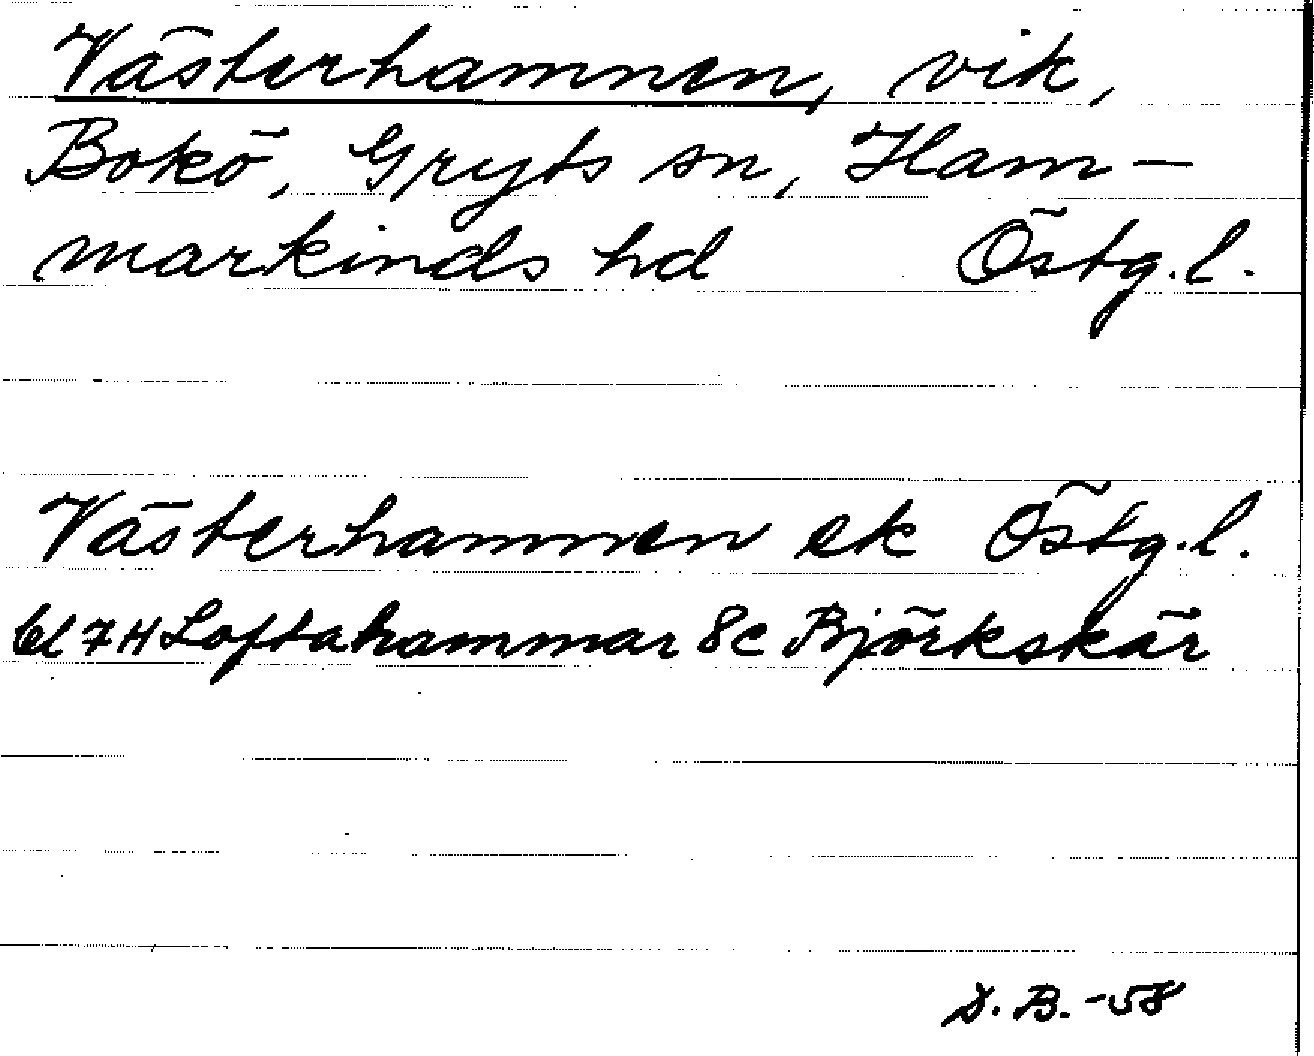 Västerhamnen, vik,
Bokö, Gryts sn, Ham-
markinds hd Östg.l.
Västerhamnen ek Östg.l.
bl 7H Loftahammar 8c Björkskär
D.B.-58